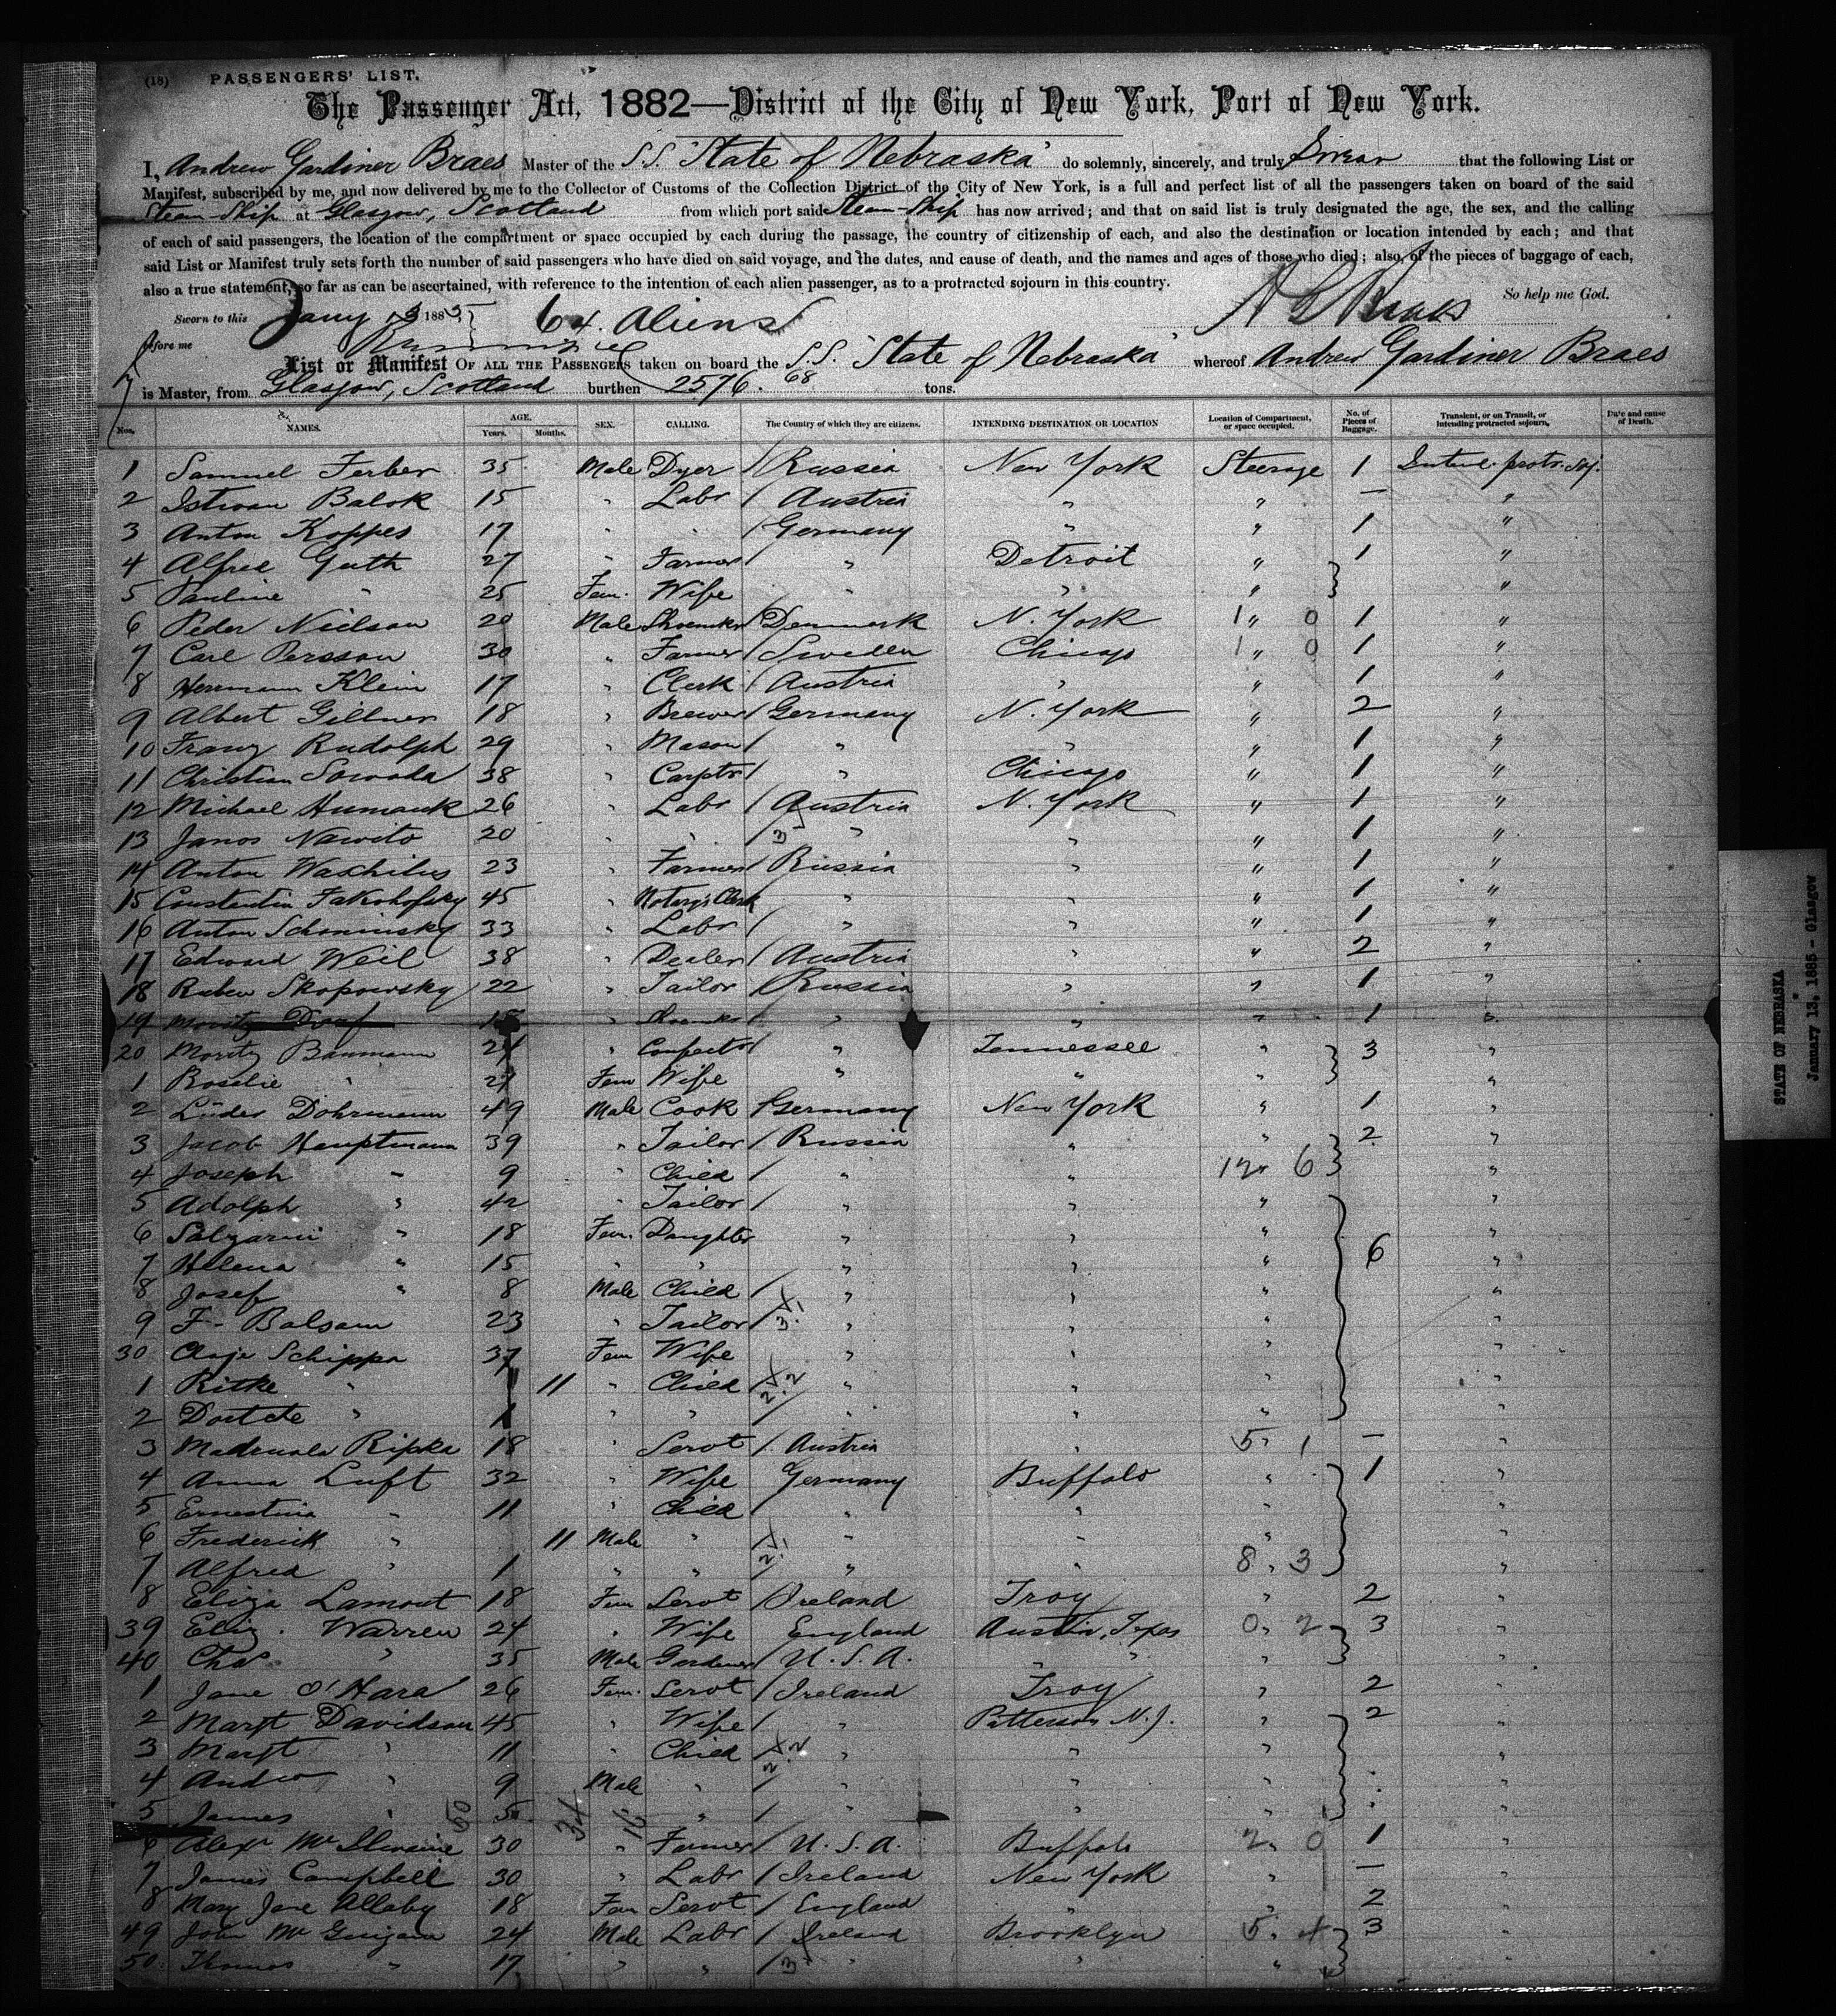 (18) PASSENGERS' LIST.
The Passenger Act, 1882—District of the City of New York, Port of New York.
I, Andrew Gardiner Braes Master of the S.S. "State of Nebraska" do solemnly, sincerely, and truly Swear that the following List or
Manifest, subscribed by me, and now delivered by me to the Collector of Customs of the Collection District of the City of New York, is a full and perfect list of all the passengers taken on board of the said
Steam-Ship at Glasgow, Scotland from which port said Steam-Ship has now arrived; and that on said list is truly designated the age, the sex, and the calling
of each of said passengers, the location of the compartment or space occupied by each during the passage, the country of citizenship of each, and also the destination or location intended by each; and that
said List or Manifest truly sets forth the number of said passengers who have died on said voyage, and the dates, and cause of death, and the names and ages of those who died; also, of the pieces of baggage of each,
also a true statement, so far as can be ascertained, with reference to the intention of each alien passenger, as to a protracted sojourn in this country.
So help me God.
Sworn to this Jany 13 1885 64. Aliens A G Braes
before me
List or Manifest OF ALL THE PASSENGERS taken on board the S.S. "State of Nebraska" whereof Andrew Gardiner Braes
is Master, from Glasgow, Scotland burthen 2576. 68 tons.
Nos. NAMES. AGE. Years. Months. SEX. CALLING. The Country of which they are citizens. INTENDING DESTINATION OR LOCATION Location of Compartment, or space occupied. No. of Pieces of Baggage. Transient, or on Transit, or intending protracted sojourn. Date and cause of Death.
1 Samuel Ferber 35 Male Dyer / Russia New York Steerage 1 Intend. protr. soj.
2 Istvan Balok 15 " Labr / Austria " " — "
3 Anton Koppes 17 " " / Germany " " 1 "
4 Alfred Guth 27 " Farmer / " Detroit " 1 "
5 Pauline " 25 Fem. Wife " " " "
6 Peder Neilson 20 Male Shoemkr / Denmark N. York 1 " 0 1 "
7 Carl Persson 30 " Farmer / Sweden Chicago 1 " 0 1 "
8 Herrmann Klein 17 " Clerk / Austria " " 1 "
9 Albert Gillner 18 " Brewer / Germany N. York " 2 "
10 Franz Rudolph 29 " Mason / " " " 1 "
11 Christian Sowada 38 " Carptr / " Chicago " 1 "
12 Michael 26 " Labr / Austria N. York " 1 "
13 Janos Nawito 20 " " / 3 " " " 1 "
14 Anton 23 " Farmer / Russia " " 1 "
15 Constantin 45 " Notary's Clerk " " " 1 "
16 Anton Schominsky 33 " Labr / " " " 1 "
17 Edward Weil 38 " Dealer / Austria " " 2 "
18 Ruben Skopowsky 22 " Tailor / Russia " " 1 "
19 Moritz 15 " Shoemkr " " " 1 "
20 Moritz Baumann 24 " Confectr / " Tennessee " 3 "
1 Rosalie " 27 Fem Wife " " " "
2 Lüder Dohrmann 49 Male Cook / Germany New York " 1 "
3 Jacob Hauptmann 39 " Tailor / Russia " " 2 "
4 Joseph " 9 " Child / " " 12 " 6 "
5 Adolph " 42 " Tailor / " " " "
6 " 18 Fem. Daughter " " " 6 "
7 Helena " 15 " " " " " "
8 Josef " 8 Male Child / " " " "
9 F. Balsam 23 " Tailor / 3.1 " " " "
30 Schippa 37 Fem Wife " " " "
1 Ritke " 11 " Child / 2.2 " " " "
2 " 1 " " / " " " "
3 Ripka 18 " Servt / Austria " 5 " 1 — "
4 Anna Luft 32 " Wife Germany Buffalo " 1 "
5 Ernestine " 11 " Child / " " " "
6 Frederick " 11 Male " 2.1 " " " "
7 Alfred " 1 " " " " 8 " 3 "
8 Eliza Lamont 18 Fem Servt / Ireland Troy " 2 "
39 Eliz. Warren 24 " Wife England Austin, Texas 0 " 2 3 "
40 Chas " 35 Male Gardener / U.S.A. " " " "
1 Jane O'Hara 26 Fem. Servt / Ireland Troy " 2 "
2 Margt Davidson 45 " Wife / " Patterson N.J. " 2 "
3 Margt " 11 " Child / 2.2 " " " "
4 Andw " 9 Male " / " " " "
5 James " 5 " " / " " " "
50 34 16
6 Alexr McIlwaine 30 " Farmer / U.S.A. Buffalo 2 " 0 1 "
7 James Campbell 30 " Labr / Ireland New York " — "
8 Mary Jane Allaby 18 Fem Servt / England " " 2 "
49 John McGuigan 24 Male Labr / Ireland Brooklyn 5 " 4 3 "
50 Thomas " 17 " " / 3 " " " "
STATE OF NEBRASKA
January 13, 1885 - Glasgow